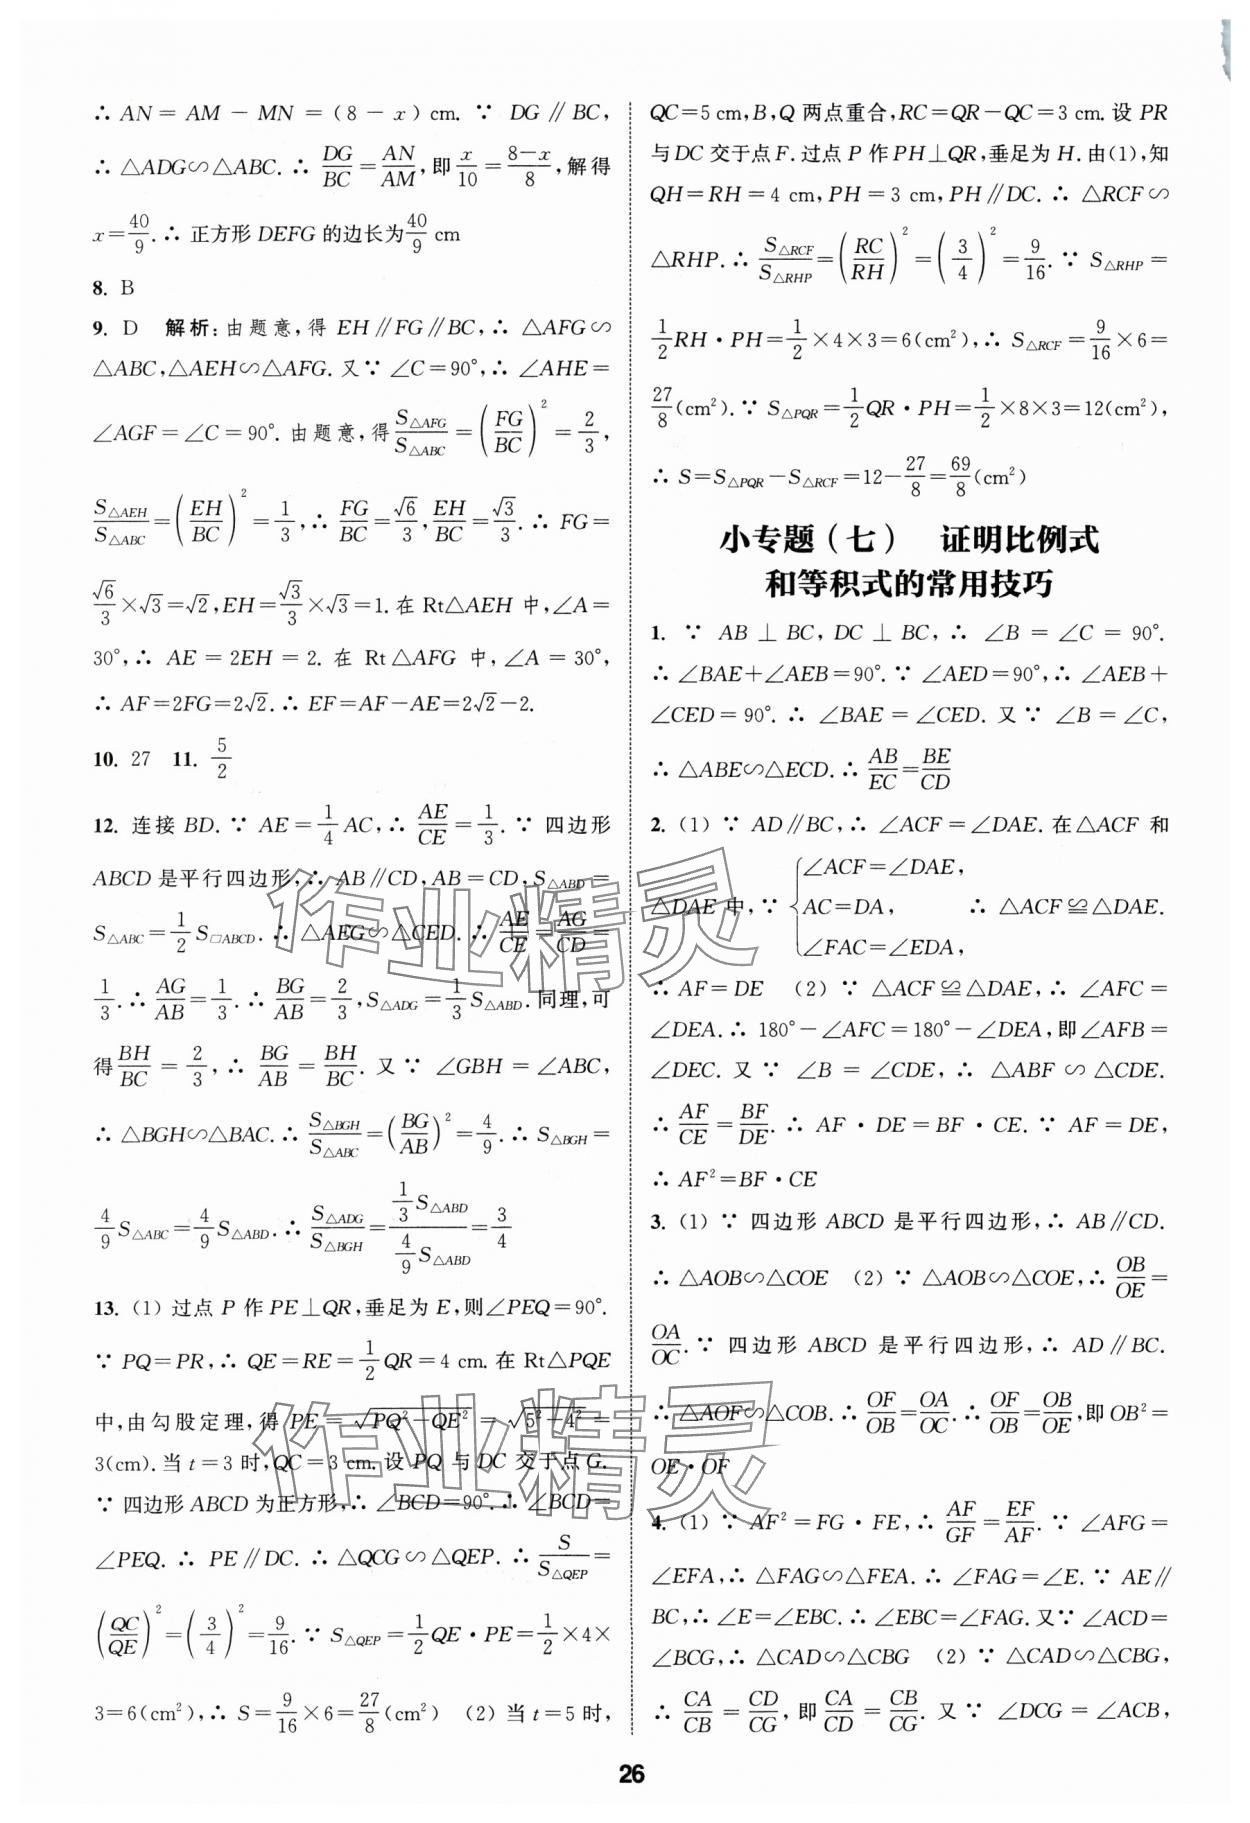 ∴ AN = AM − MN = (8 − x) cm. ∵ DG∥BC,
∴ △ADG∽△ABC. ∴ DG/BC = AN/AM, 即 x/10 = (8−x)/8, 解得
x = 40/9. ∴ 正方形 DEFG 的边长为 40/9 cm
8. B
9. D 解析: 由题意, 得 EH∥FG∥BC, ∴ △AFG∽
△ABC, △AEH∽△AFG. 又∵ ∠C=90°, ∴ ∠AHE=
∠AGF=∠C=90°. 由题意, 得 S△AFG/S△ABC = (FG/BC)² = 2/3,
S△AEH/S△ABC = (EH/BC)² = 1/3, ∴ FG/BC = √6/3, EH/BC = √3/3. ∴ FG=
√6/3×√3=√2, EH=√3/3×√3=1. 在 Rt△AEH 中, ∠A=
30°, ∴ AE=2EH=2. 在 Rt△AFG 中, ∠A=30°,
∴ AF=2FG=2√2. ∴ EF=AF−AE=2√2−2.
10. 27 11. 5/2
12. 连接 BD. ∵ AE=1/4 AC, ∴ AE/CE=1/3. ∵ 四边形
ABCD 是平行四边形, ∴ AB∥CD, AB=CD, S△ABD=
S△ABC=1/2 S□ABCD. ∴ △AEG∽△CED. ∴ AE/CE=AG/CD=
1/3. ∴ AG/AB=1/3. ∴ BG/AB=2/3, S△ADG=1/3 S△ABD. 同理, 可
得 BH/BC=2/3, ∴ BG/AB=BH/BC. 又∵ ∠GBH=∠ABC,
∴ △BGH∽△BAC. ∴ S△BGH/S△ABC=(BG/AB)²=4/9. ∴ S△BGH=
4/9 S△ABC=4/9 S△ABD. ∴ S△ADG/S△BGH=(1/3 S△ABD)/(4/9 S△ABD)=3/4
13. (1) 过点 P 作 PE⊥QR, 垂足为 E, 则∠PEQ=90°.
∵ PQ=PR, ∴ QE=RE=1/2 QR=4 cm. 在 Rt△PQE
中, 由勾股定理, 得 PE=√(PQ²−QE²)=√(5²−4²)=
3(cm). 当 t=3 时, QC=3 cm. 设 PQ 与 DC 交于点 G.
∵ 四边形 ABCD 为正方形, ∴ ∠BCD=90°. ∴ ∠BCD=
∠PEQ. ∴ PE∥DC. ∴ △QCG∽△QEP. ∴ S/S△QEP=
(QC/QE)²=(3/4)²=9/16. ∵ S△QEP=1/2 QE·PE=1/2×4×
3=6(cm²), ∴ S=9/16×6=27/8(cm²) (2) 当 t=5 时,
QC=5 cm, B, Q 两点重合, RC=QR−QC=3 cm. 设 PR
与 DC 交于点 F. 过点 P 作 PH⊥QR, 垂足为 H. 由(1), 知
QH=RH=4 cm, PH=3 cm, PH∥DC. ∴ △RCF∽
△RHP. ∴ S△RCF/S△RHP=(RC/RH)²=(3/4)²=9/16. ∵ S△RHP=
1/2 RH·PH=1/2×4×3=6(cm²), ∴ S△RCF=9/16×6=
27/8(cm²). ∵ S△PQR=1/2 QR·PH=1/2×8×3=12(cm²),
∴ S=S△PQR−S△RCF=12−27/8=69/8(cm²)
小专题(七) 证明比例式
和等积式的常用技巧
1. ∵ AB⊥BC, DC⊥BC, ∴ ∠B=∠C=90°.
∴ ∠BAE+∠AEB=90°. ∵ ∠AED=90°, ∴ ∠AEB+
∠CED=90°. ∴ ∠BAE=∠CED. 又∵ ∠B=∠C,
∴ △ABE∽△ECD. ∴ AB/EC=BE/CD
2. (1) ∵ AD∥BC, ∴ ∠ACF=∠DAE. 在△ACF 和
△DAE 中, ∵ {∠ACF=∠DAE,
AC=DA, ∴ △ACF≌△DAE.
∠FAC=∠EDA,
∴ AF=DE (2) ∵ △ACF≌△DAE, ∴ ∠AFC=
∠DEA. ∴ 180°−∠AFC=180°−∠DEA, 即∠AFB=
∠DEC. 又∵ ∠B=∠CDE, ∴ △ABF∽△CDE.
∴ AF/CE=BF/DE. ∴ AF·DE=BF·CE. ∵ AF=DE,
∴ AF²=BF·CE
3. (1) ∵ 四边形 ABCD 是平行四边形, ∴ AB∥CD.
∴ △AOB∽△COE (2) ∵ △AOB∽△COE, ∴ OB/OE=
OA/OC. ∵ 四边形 ABCD 是平行四边形, ∴ AD∥BC.
∴ △AOF∽△COB. ∴ OF/OB=OA/OC. ∴ OF/OB=OB/OE, 即 OB²=
OE·OF
4. (1) ∵ AF²=FG·FE, ∴ AF/GF=EF/AF. ∵ ∠AFG=
∠EFA, ∴ △FAG∽△FEA. ∴ ∠FAG=∠E. ∵ AE∥
BC, ∴ ∠E=∠EBC. ∴ ∠EBC=∠FAG. 又∵ ∠ACD=
∠BCG, ∴ △CAD∽△CBG (2) ∵ △CAD∽△CBG,
∴ CA/CB=CD/CG, 即 CA/CD=CB/CG. 又∵ ∠DCG=∠ACB,
26
作业精灵
作业精灵